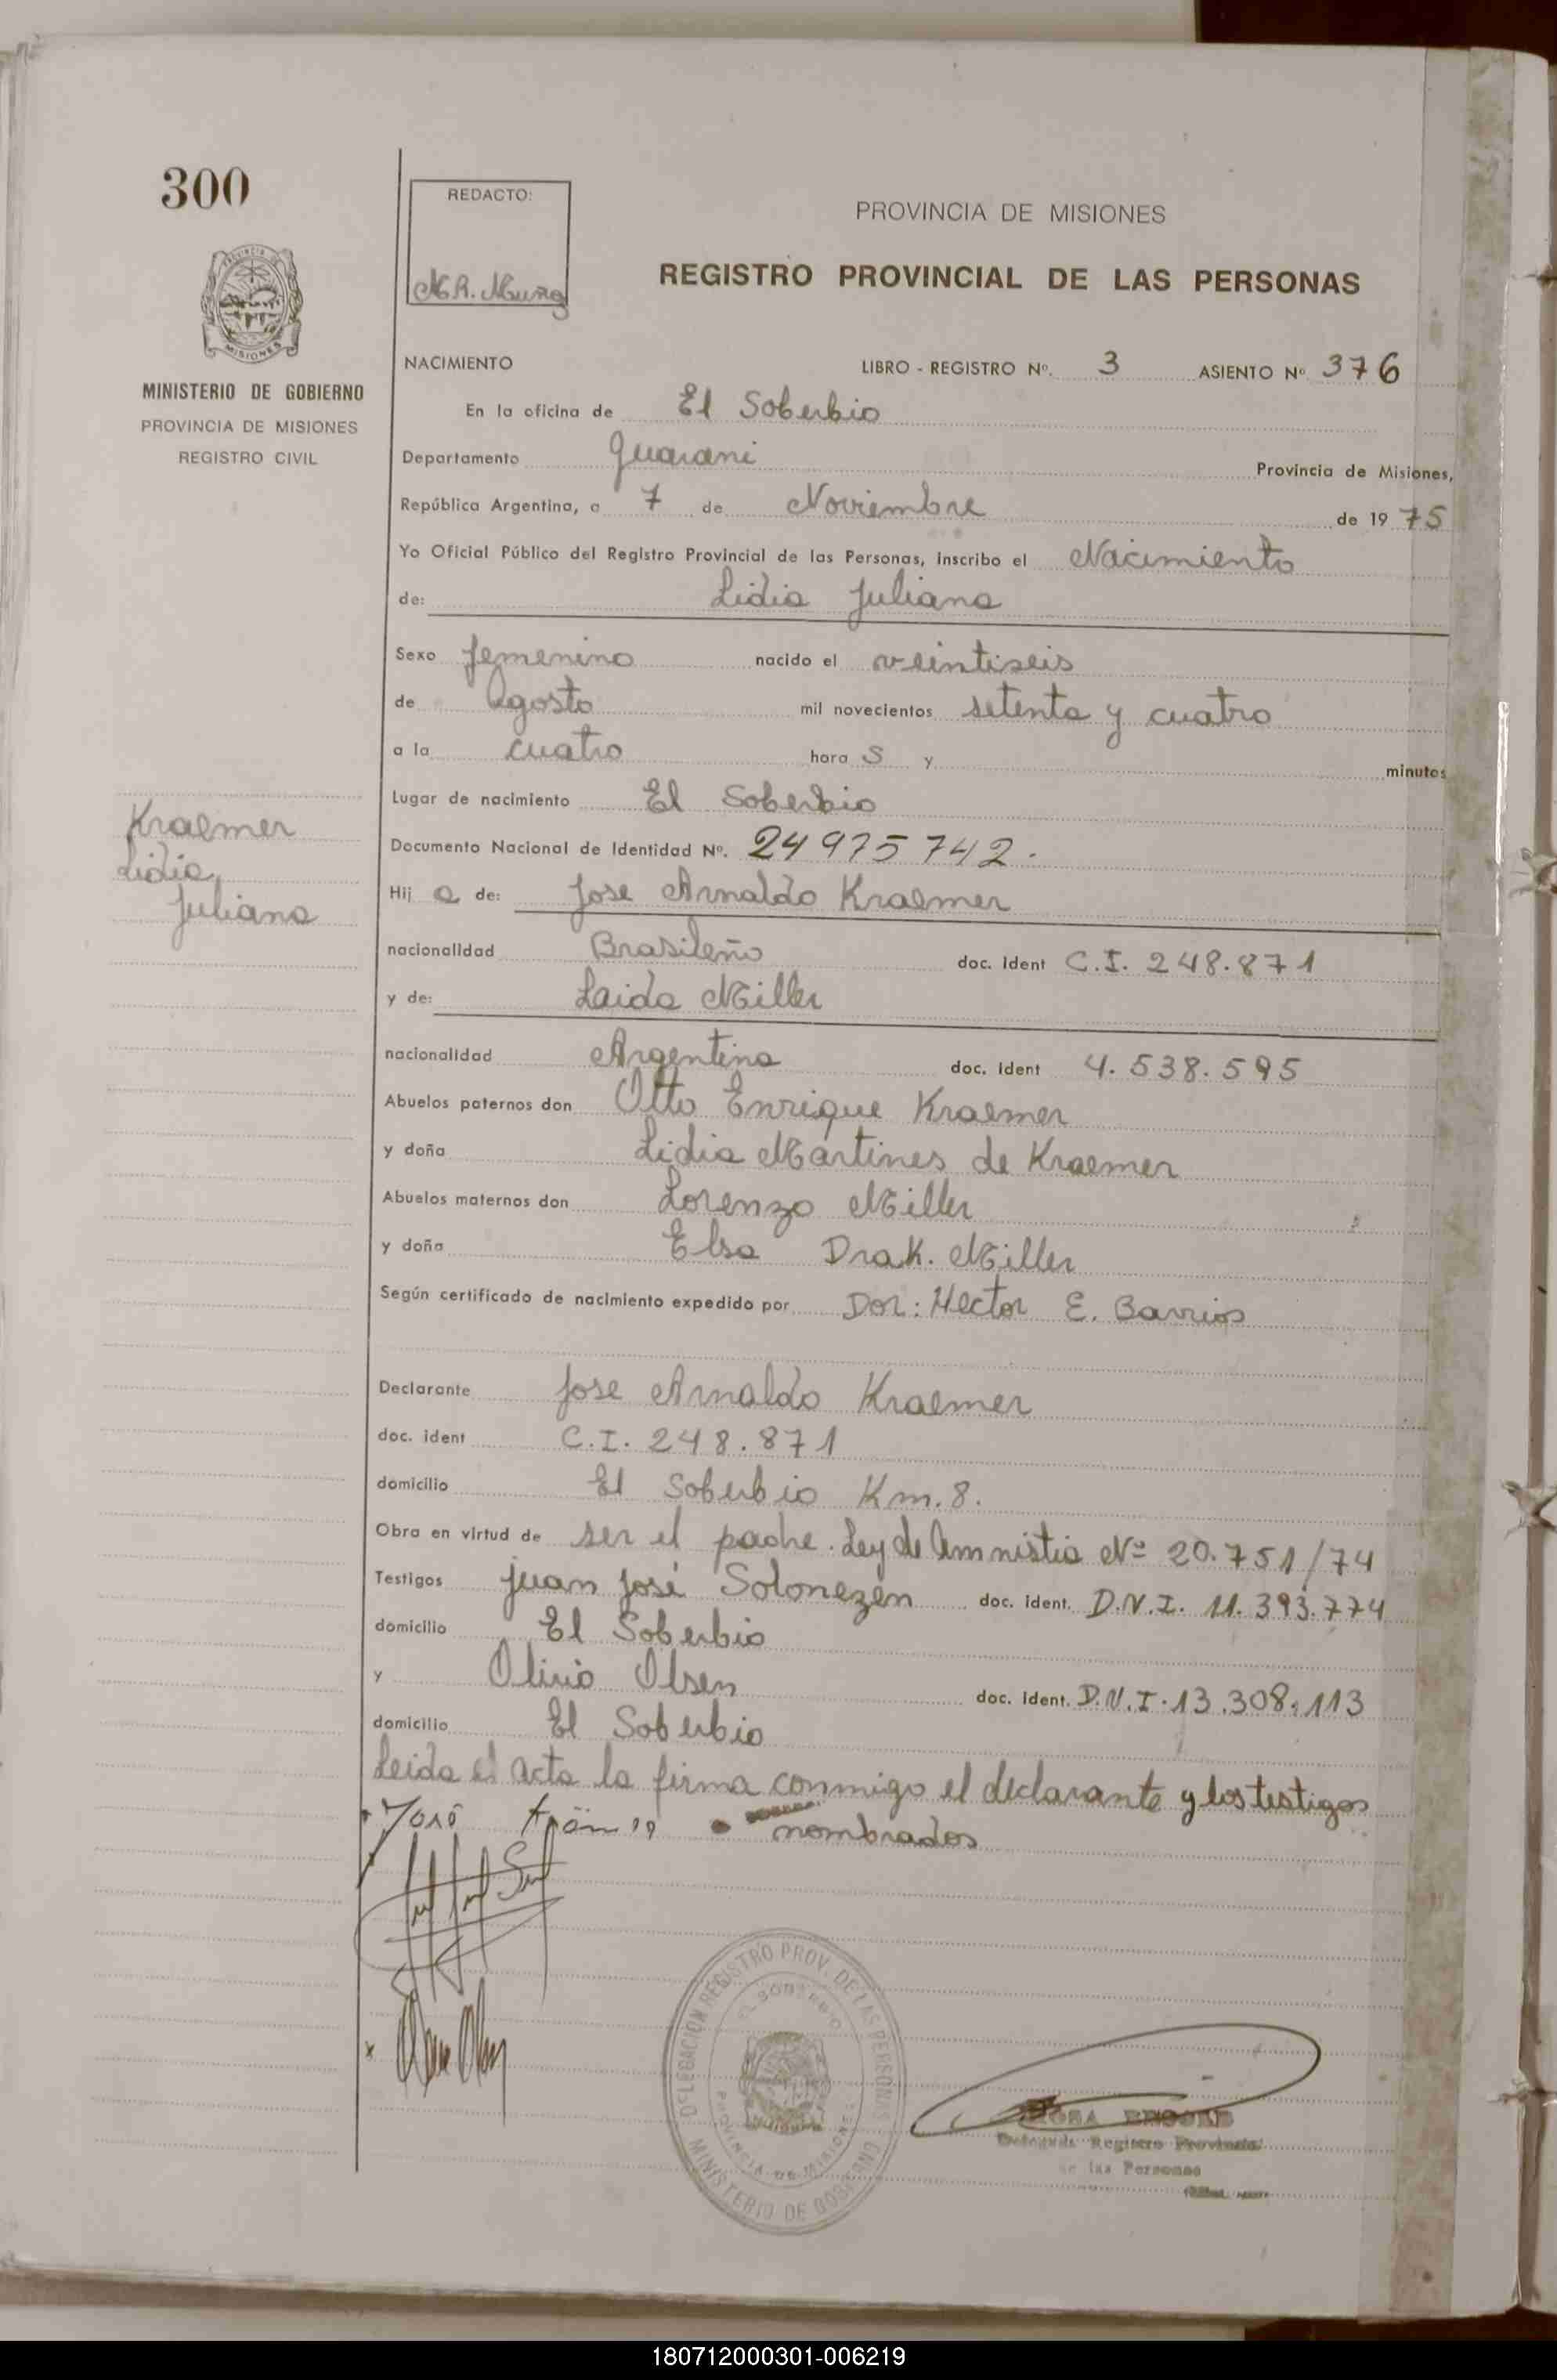 300
REDACTO:
PROVINCIA DE MISIONES
REGISTRO PROVINCIAL DE LAS PERSONAS
MISIONES
MINISTERIO DE GOBIERNO
PROVINCIA DE MISIONES
REGISTRO CIVIL
NACIMIENTO LIBRO - REGISTRO Nº. 3 ASIENTO Nº 376
En la oficina de El Soberbio
Departamento Guarani Provincia de Misiones,
República Argentina, a 7 de Noviembre de 1975
Yo Oficial Público del Registro Provincial de las Personas, inscribo el Nacimiento
de: Lidia Juliana
Sexo femenino nacido el veintiseis
de Agosto mil novecientos setenta y cuatro
a la cuatro hora S y minutos
Lugar de nacimiento El Soberbio
Kraemer
Lidia
Juliana
Documento Nacional de Identidad Nº. 24975742.
Hij a de: Jose Arnaldo Kraemer
nacionalidad Brasileño doc. ident C.I. 248.871
y de: Laida Miller
nacionalidad Argentina doc. ident 4.538.595
Abuelos paternos don Otto Enrique Kraemer
y doña Lidia Martines de Kraemer
Abuelos maternos don Lorenzo Miller
y doña Elsa Drak. Miller
Según certificado de nacimiento expedido por Dor: Hector E. Barrios
Declarante Jose Arnaldo Kraemer
doc. ident C.I. 248.871
domicilio El Soberbio Km. 8.
Obra en virtud de ser el padre. Ley de Amnistia Nº 20.751/74
Testigos Juan José Solonezen doc. ident. D.N.I. 11.393.774
domicilio El Soberbio
y Olirio Olsen doc. ident. D.N.I. 13.308.113
domicilio El Soberbio
Leida el acta la firma conmigo el declarante y los testigos
nombrados
DELEGACION REGISTRO PROV. DE LAS PERSONAS
EL SOBERBIO
PROVINCIA DE MISIONES
MINISTERIO DE GOBIERNO
Registro Provincial
de las Personas
180712000301-006219